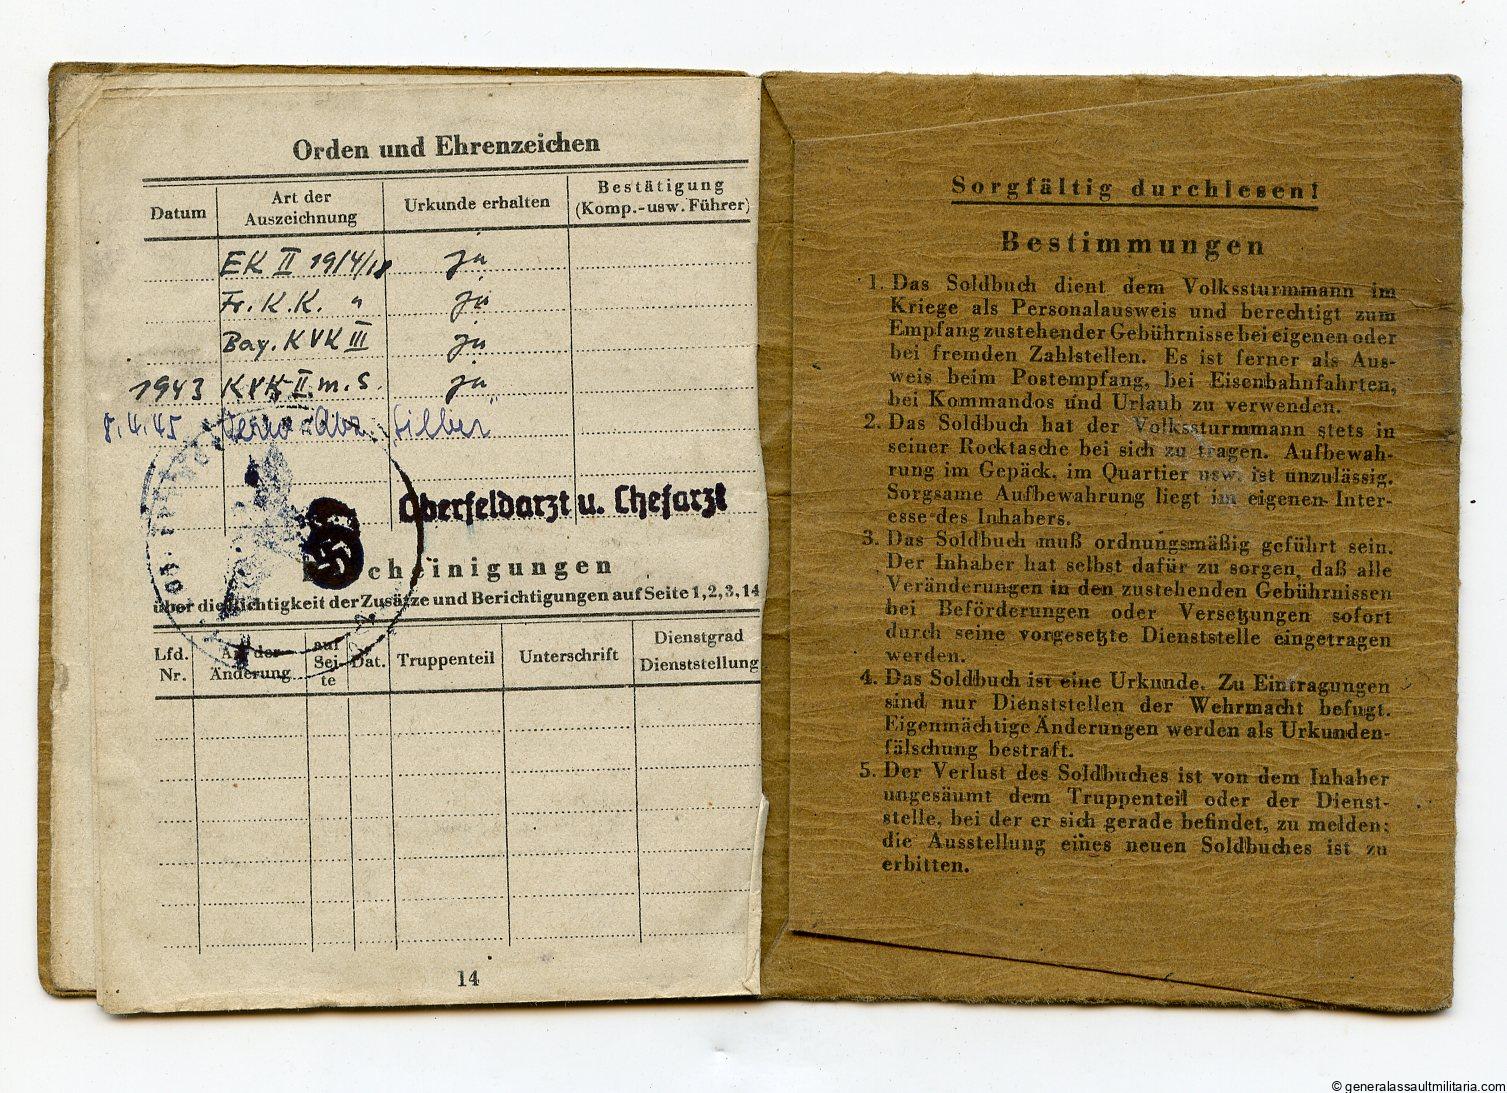 Orden und Ehrenzeichen
Datum
Art der
Auszeichnung
Urkunde erhalten
Bestätigung
(Komp.-usw. Führer)
EK II 1914/18 ja
Fr. K. K. " ja
Bay. KVK III ja
1943 KVK II. m. S. ja
8.4.45 Silber"
Oberfeldarzt u. Chefarzt
cheinigungen
über die Richtigkeit der Zusätze und Berichtigungen auf Seite 1, 2, 3, 14
Lfd.
Nr.
Art der
Änderung
auf
Sei-
te
Dat.
Truppenteil
Unterschrift
Dienstgrad
Dienststellung
14
Sorgfältig durchlesen!
Bestimmungen
1. Das Soldbuch dient dem Volkssturmmann im
Kriege als Personalausweis und berechtigt zum
Empfang zustehender Gebührnisse bei eigenen oder
bei fremden Zahlstellen. Es ist ferner als Aus-
weis beim Postempfang, bei Eisenbahnfahrten,
bei Kommandos und Urlaub zu verwenden.
2. Das Soldbuch hat der Volkssturmmann stets in
seiner Rocktasche bei sich zu tragen. Aufbewah-
rung im Gepäck, im Quartier usw. ist unzulässig.
Sorgsame Aufbewahrung liegt im eigenen Inter-
esse des Inhabers.
3. Das Soldbuch muß ordnungsmäßig geführt sein.
Der Inhaber hat selbst dafür zu sorgen, daß alle
Veränderungen in den zustehenden Gebührnissen
bei Beförderungen oder Versetzungen sofort
durch seine vorgesetzte Dienststelle eingetragen
werden.
4. Das Soldbuch ist eine Urkunde. Zu Eintragungen
sind nur Dienststellen der Wehrmacht befugt.
Eigenmächtige Änderungen werden als Urkunden-
fälschung bestraft.
5. Der Verlust des Soldbuches ist von dem Inhaber
ungesäumt dem Truppenteil oder der Dienst-
stelle, bei der er sich gerade befindet, zu melden;
die Ausstellung eines neuen Soldbuches ist zu
erbitten.
© generalassaultmilitaria.com